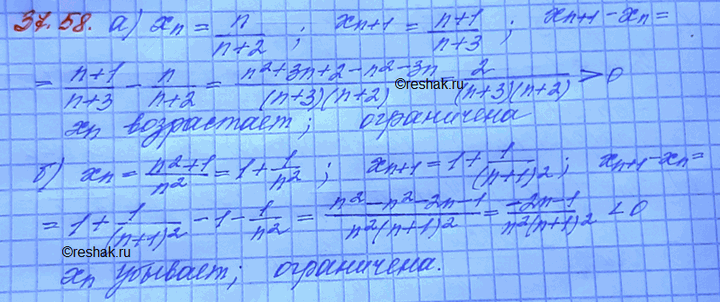 37.58. а) xₙ = n/(n+2) ; xₙ₊₁ = (n+1)/(n+3) ; xₙ₊₁ - xₙ =
= (n+1)/(n+3) - n/(n+2) = (n²+3n+2-n²-3n)/((n+3)(n+2)) = 2/((n+3)(n+2)) > 0
©reshak.ru
xₙ возрастает; ограничена
б) xₙ = (n²+1)/n² = 1 + 1/n² ; xₙ₊₁ = 1 + 1/(n+1)² ; xₙ₊₁ - xₙ =
= 1 + 1/(n+1)² - 1 - 1/n² = (n²-n²-2n-1)/(n²(n+1)²) = (-2n-1)/(n²(n+1)²) < 0
©reshak.ru
xₙ убывает; ограничена.